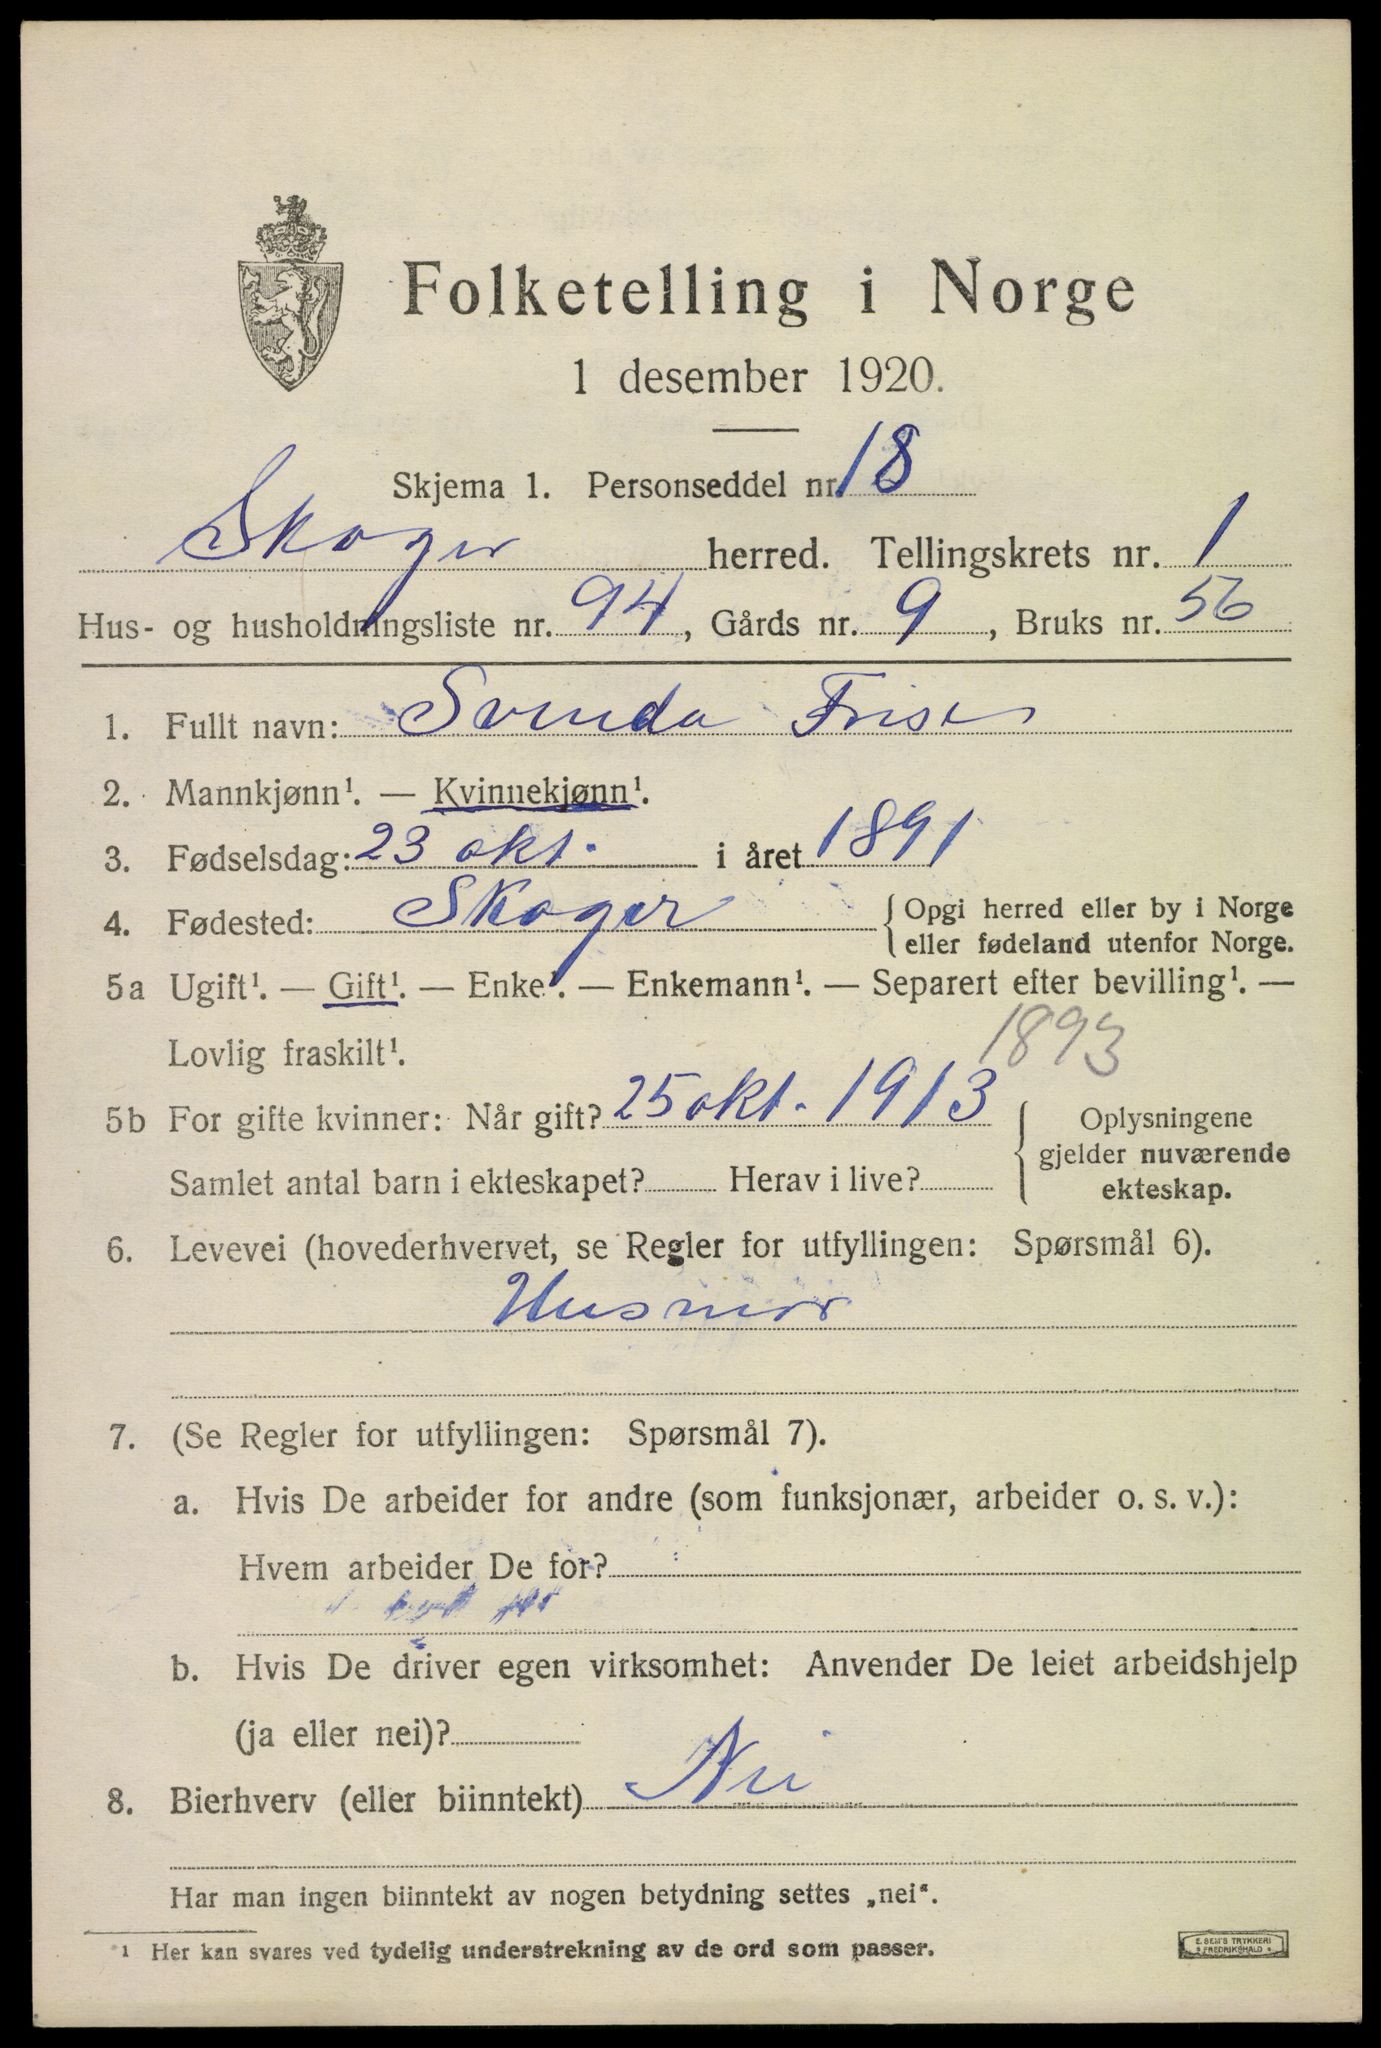 Folketelling i Norge
1 desember 1920.
Skjema 1. Personseddel nr. 18
Skoger herred. Tellingskrets nr. 1
Hus- og husholdningsliste nr. 94, Gårds nr. 9, Bruks nr. 56
1. Fullt navn: Svenda
2. Mannkjønn¹. — Kvinnekjønn¹.
3. Fødselsdag: 23 okt. i året 1891
4. Fødested: Skoger { Opgi herred eller by i Norge
eller fødeland utenfor Norge.
5a Ugift¹. — Gift¹. — Enke¹. — Enkemann¹. — Separert efter bevilling¹. —
Lovlig fraskilt¹.
1893
5b For gifte kvinner: Når gift? 25 okt. 1913 { Oplysningene
gjelder nuværende
Samlet antal barn i ekteskapet? Herav i live?
ekteskap.
6. Levevei (hovederhvervet, se Regler for utfyllingen: Spørsmål 6).
Husmor
7. (Se Regler for utfyllingen: Spørsmål 7).
a. Hvis De arbeider for andre (som funksjonær, arbeider o. s. v.):
Hvem arbeider De for?
b. Hvis De driver egen virksomhet: Anvender De leiet arbeidshjelp
(ja eller nei)?
8. Bierhverv (eller biinntekt) Nei
Har man ingen biinntekt av nogen betydning settes „nei“.
¹ Her kan svares ved tydelig understrekning av de ord som passer.
E. SEM'S TRYKKERI
FREDRIKSHALD